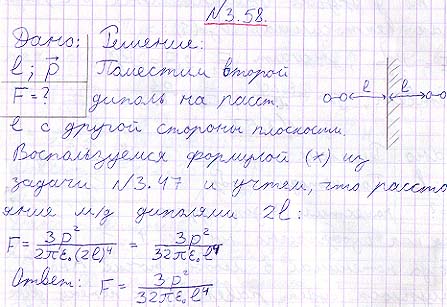 N3.58.
Дано: Решение:
l; p⃗ Поместим второй
F=? диполь на расст.
l с другой стороны плоскости.
l l
Воспользуемся формулой (x) из
задачи N3.47 и учтем, что рассто
яние м/д диполями 2l:
F = 3p²/2πε₀(2l)⁴ = 3p²/32πε₀l⁴
Ответ: F = 3p²/32πε₀l⁴